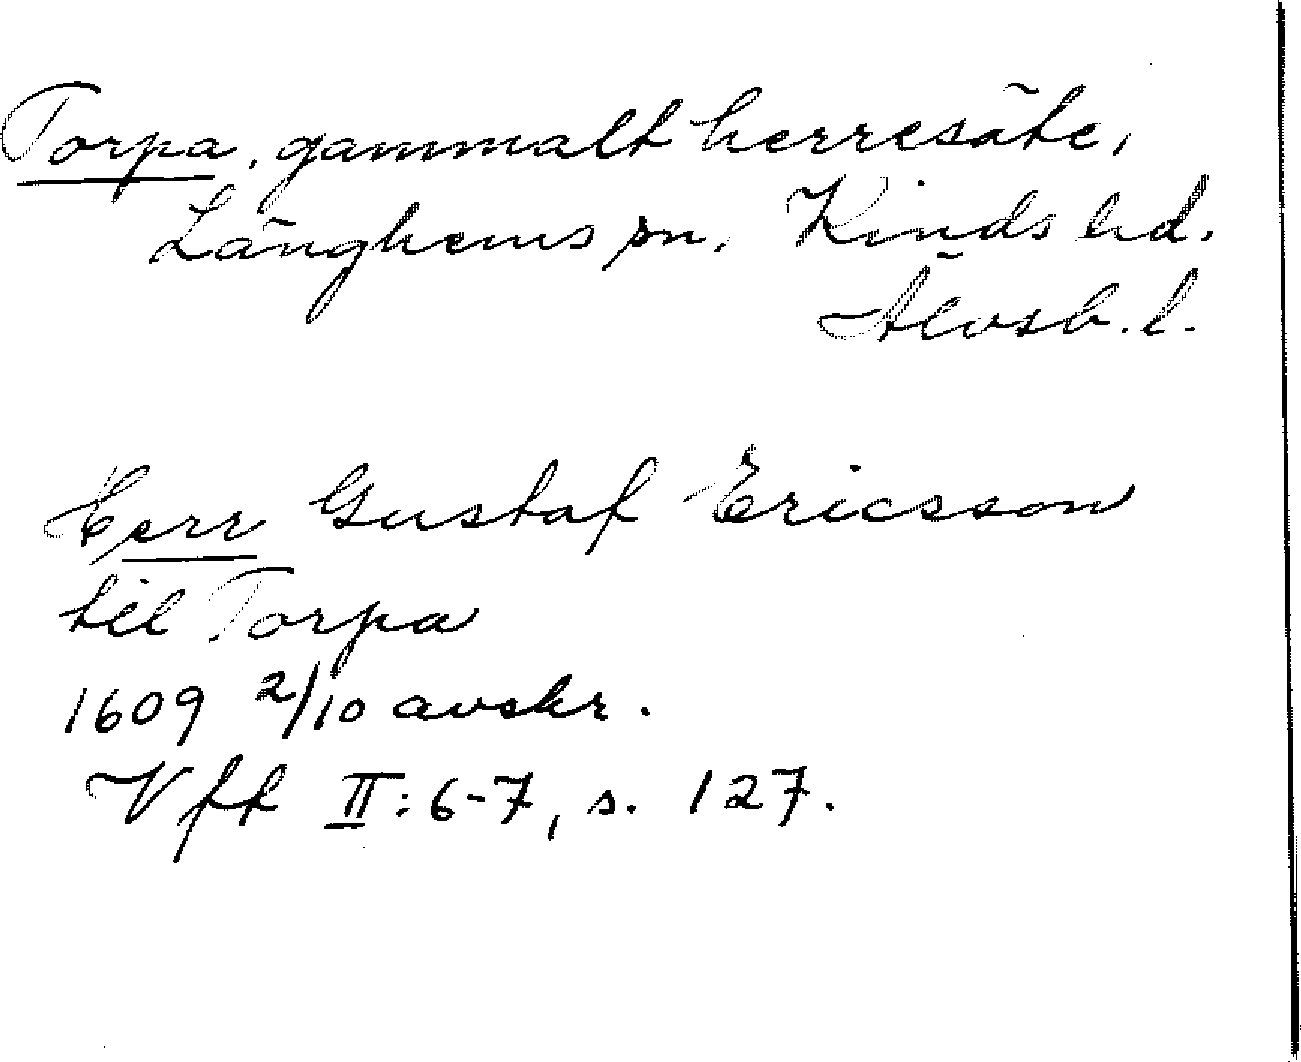 Torpa, gammalt herresäte,
Länghems sn, Kinds hd.
Älvsb. l.
Herr Gustaf Ericsson
til Torpa
1609 2/10 avskr.
Vff II: 6-7, s. 127.